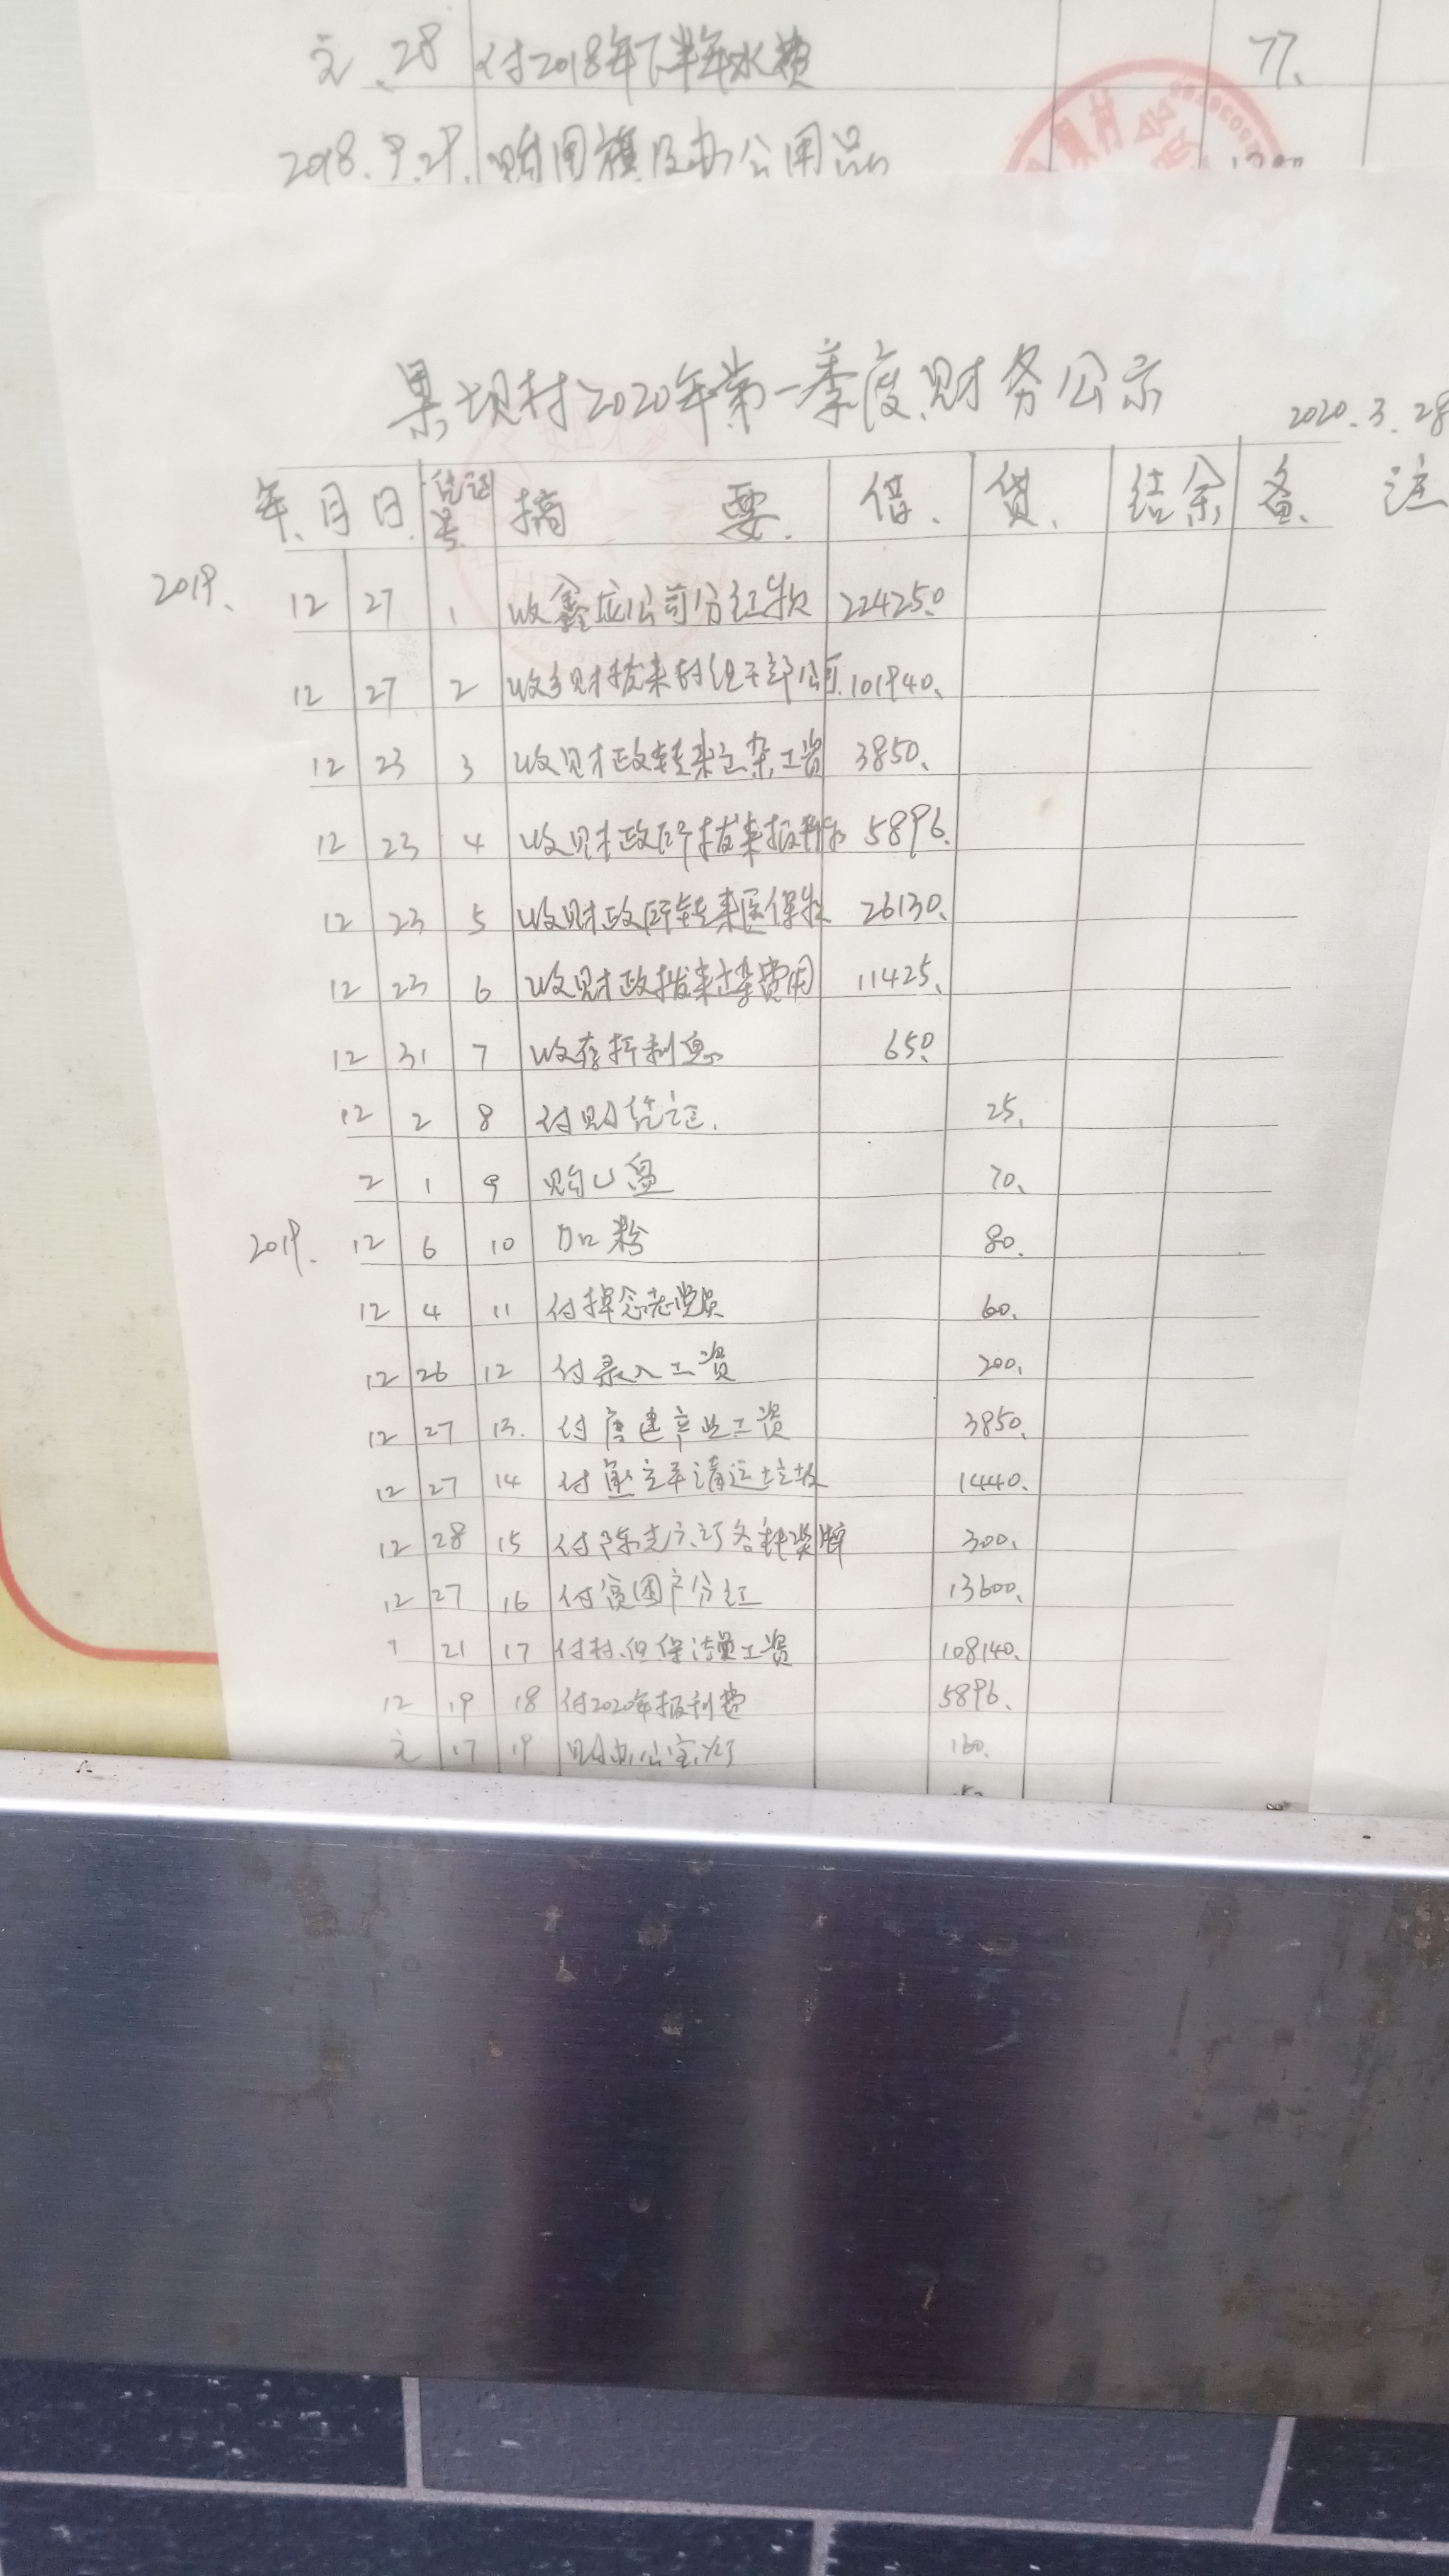 元.28 付2018年下半年水费 77.
2018.9.29. 购国旗及办公用品
果坝村2020年第一季度财务公示
2020.3.28
年.月 日. 凭证号. 摘 要. 借. 贷. 结余 备. 注
2019. 12 27 1 收鑫应公司分红款 224250.
12 27 2 收乡财拨来村组干部 101940.
12 23 3 收财政转来 工资 3850.
12 23 4 收财政所拨来报刊款 5896.
12 23 5 收财政所转来医保款 26130.
12 23 6 收财政拨来 费用 11425.
12 31 7 收存折利息. 650.
12 2 8 付购凭证. 25.
2 1 9 购U盘 70.
2019. 12 6 10 加粉 80.
12 4 11 付悼念老党员 60.
12 26 12 付录入工资 200.
12 27 13. 付唐建产业工资 3850.
12 27 14 付 清运垃圾 1440.
12 28 15 付陈 各种 牌 300.
12 27 16 付贫困户分红 13600.
1 21 17 付村.组.保洁员工资 108140.
12 19 18 付2020年报刊费 5896.
元 17 19 购办公室灯 160.